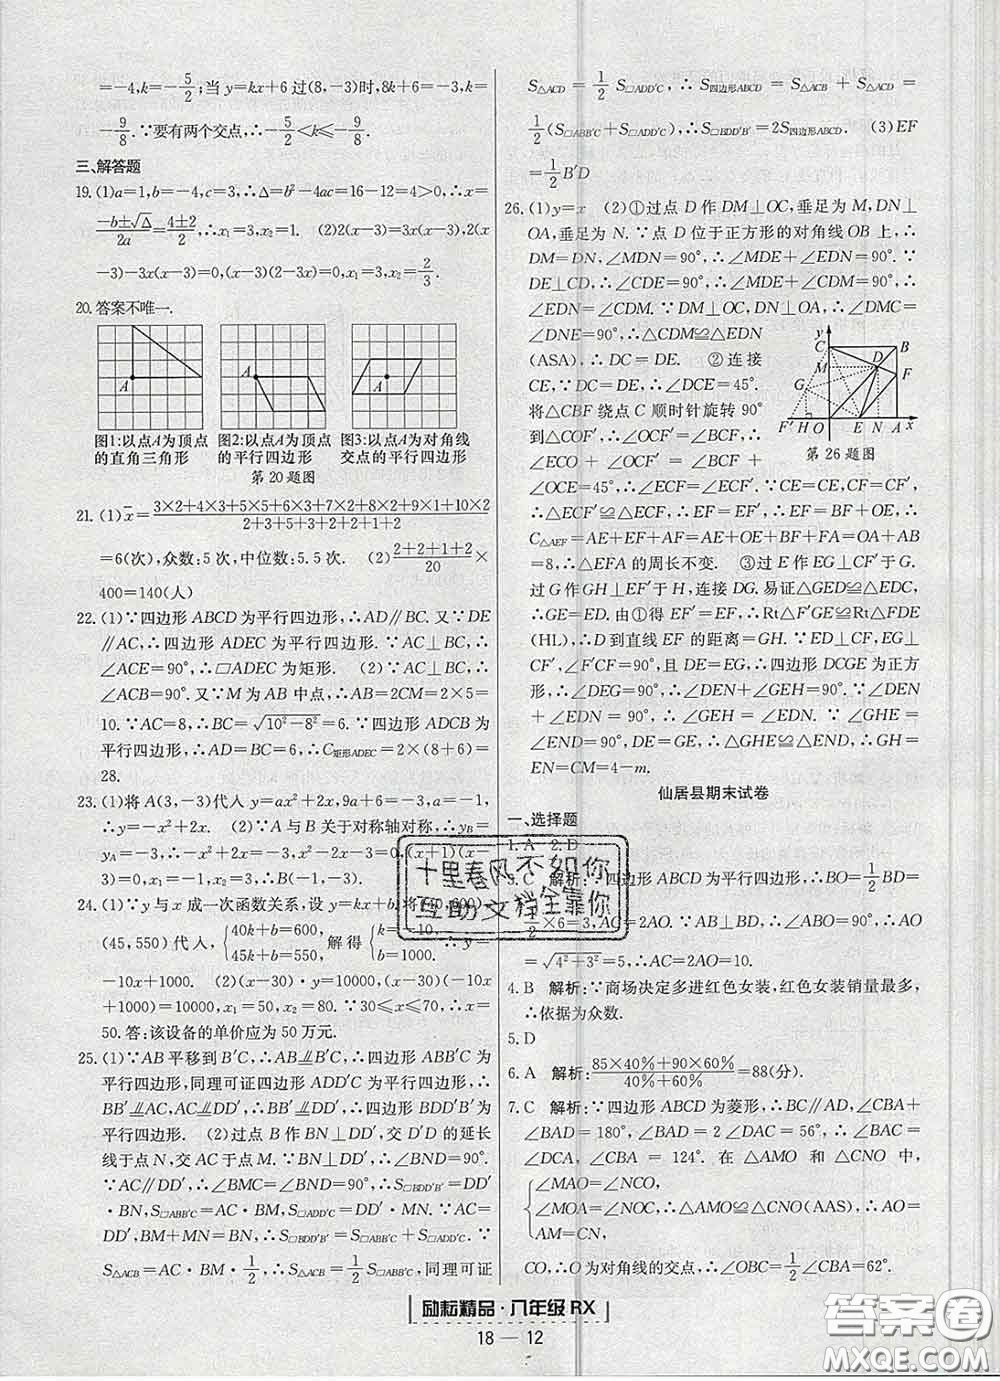 =-4,k=-5/2;当 y=kx+6 过(8,-3)时,8k+6=-3,k=
-9/8.∵要有两个交点,∴-5/2<k≤-9/8.
三、解答题
19.(1)a=1,b=-4,c=3,∴Δ=b²-4ac=16-12=4>0,∴x=
(-b±√Δ)/2a=(4±2)/2,∴x₁=3,x₂=1. (2)2(x-3)=3x(x-3),2(x
-3)-3x(x-3)=0,(x-3)(2-3x)=0,x₁=3,x₂=2/3.
20.答案不唯一.
A
A
A
图1:以点A为顶点的直角三角形
图2:以点A为顶点的平行四边形
图3:以点A为对角线交点的平行四边形
第20题图
21.(1)x̄=(3×2+4×3+5×5+6×3+7×2+8×2+9×1+10×2)/(2+3+5+3+2+2+1+2)
=6(次),众数:5次,中位数:5.5次. (2)(2+2+1+2)/20×
400=140(人)
22.(1)∵四边形ABCD为平行四边形,∴AD∥BC.又∵DE
∥AC,∴四边形ADEC为平行四边形.∵AC⊥BC,∴
∠ACE=90°,∴□ADEC为矩形. (2)∵AC⊥BC,∴
∠ACB=90°.又∵M为AB中点,∴AB=2CM=2×5=
10.∵AC=8,∴BC=√(10²-8²)=6.∵四边形ADCB为
平行四边形,∴AD=BC=6,∴C矩形ADEC=2×(8+6)=
28.
23.(1)将A(3,-3)代入y=ax²+2x,9a+6=-3,a=-1,
∴y=-x²+2x. (2)∵A与B关于对称轴对称,∴y_B=
y_A=-3,∴-x²+2x=-3,x²-2x-3=0,(x+1)(x-
3)=0,x₁=3,x₂=-1,∴B(-1,-3).
24.(1)∵y与x成一次函数关系,设y=kx+b,将(40,600)
(45,550)代入,{40k+b=600, 45k+b=550, 解得{k=-10, b=1000. ∴y=
-10x+1000. (2)(x-30)·y=10000,(x-30)(-10x
+1000)=10000,x₁=50,x₂=80.∵30≤x≤70,∴x=
50.答:该设备的单价应为50万元.
25.(1)∵AB平移到B′C,∴AB∥B′C,∴四边形ABB′C为
平行四边形,同理可证四边形ADD′C为平行四边形,∴
BB′∥AC,AC∥DD′,∴BB′∥DD′,∴四边形BDD′B′为
平行四边形. (2)过点B作BN⊥DD′,交D′D的延长
线于点N,交AC于点M.∵BN⊥DD′,∴∠BND=90°.∵
AC∥DD′,∴∠BMC=∠BND=90°,∴S□BDD′B′=DD′
·BN,S□ABB′C=AC·BM,S□ADD′C=DD′·MN.∵AC=
DD′,BM+MN=BN,∴S□BDD′B′=S□ABB′C+S□ADD′C.∵
S△ACB=AC·BM·1/2,∴S△ACB=1/2S□ABB′C,同理可证
S△ACD=1/2S□ADD′C,∴S四边形ABCD=S△ACB+S△ACD=
1/2(S□ABB′C+S□ADD′C),∴S□BDD′B′=2S四边形ABCD. (3)EF
=1/2B′D
26.(1)y=x (2)①过点D作DM⊥OC,垂足为M,DN⊥
OA,垂足为N.∵点D位于正方形的对角线OB上,∴
DM=DN,∠MDN=90°,∴∠MDE+∠EDN=90°.∵
DE⊥CD,∴∠CDE=90°,∴∠MDE+∠CDM=90°,∴
∠EDN=∠CDM.∵DM⊥OC,DN⊥OA,∴∠DMC=
∠DNE=90°,∴△CDM≌△EDN
(ASA),∴DC=DE. ②连接
CE,∵DC=DE,∴∠DCE=45°.
将△CBF绕点C顺时针旋转90°
到△COF′,∴∠OCF′=∠BCF,∴
∠ECO+∠OCF′=∠BCF+
∠OCE=45°,∴∠ECF=∠ECF′.∵CE=CE,CF=
CF′,∴△ECF′≌△ECF,∴EF=EF′,∴EF=BF+OE,∴
C△AEF=AE+EF+AF=AE+OE+BF+FA=OA+AB
=8,∴△EFA的周长不变. ③过E作EG⊥CF′于G.
过G作GH⊥EF′于H,连接DG.易证△GED≌△CDE,
∴GE=ED.由①得EF′=EF,∴Rt△F′GE≌Rt△FDE
(HL),∴D到直线EF的距离=GH.∵CD⊥ED,EG⊥
CF′,∠GCF=90°,且DE=EG,∴四边形DCGE为正方
形,∴∠DEG=90°,∴∠DEN+∠GEH=90°.∵∠DEN
+∠EDN=90°,∴∠GEH=∠EDN.∵∠GHE=
∠END=90°,DE=GE,∴△GHE≌△END,∴GH=
EN=CM=4-m.
y
C
B
M
D
G
F
F′ H O E N A x
第26题图
仙居县期末试卷
一、选择题
1.A 2.D
3.C 解析:∵四边形ABCD为平行四边形,∴BO=1/2BD=
1/2×6=3,AC=2AO.∵AB⊥BD,∴∠ABO=90°,∴AO
=√(4²+3²)=5,∴AC=2AO=10.
4.B 解析:∵商场决定多进红色女装,红色女装销量最多,
∴依据为众数.
5.D
6.A 解析:(85×40%+90×60%)/(40%+60%)=88(分).
7.C 解析:∵四边形ABCD为菱形,∴BC∥AD,∠CBA+
∠BAD=180°,∠BAD=2∠DAC=56°,∴∠BAC=
∠DCA,∠CBA=124°.在△AMO和△CNO中,
{∠MAO=∠NCO,
∠MOA=∠NOC,∴△AMO≌△CNO(AAS),∴AO=
AM=CN,
CO,∴O为对角线的交点,∴∠OBC=1/2∠CBA=62°.
十里春风不如你
互助文档全靠你
励耘精品·八年级RX
18—12
答案圈
MXQE.COM